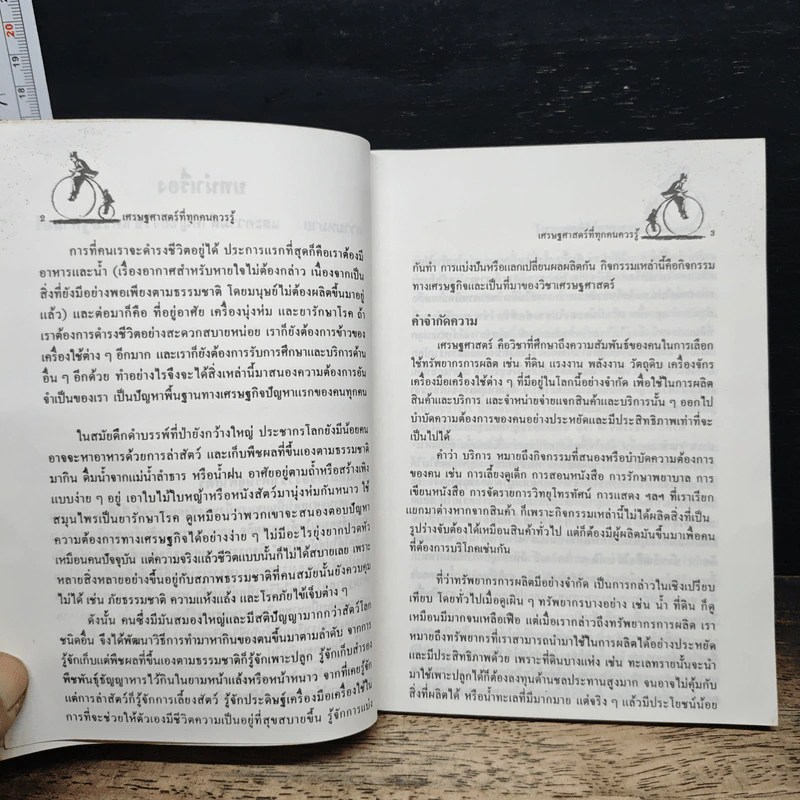 2 เศรษฐศาสตร์ที่ทุกคนควรรู้
การที่คนเราจะดำรงชีวิตอยู่ได้ ประการแรกที่สุดก็คือเราต้องมี
อาหารและน้ำ (เรื่องอากาศสำหรับหายใจไม่ต้องกล่าว เนื่องจากเป็น
สิ่งที่ยังมีอย่างพอเพียงตามธรรมชาติ โดยมนุษย์ไม่ต้องผลิตขึ้นมาอยู่
แล้ว) และต่อมาก็คือ ที่อยู่อาศัย เครื่องนุ่งห่ม และยารักษาโรค ถ้า
เราต้องการดำรงชีวิตอย่างสะดวกสบายหน่อย เราก็ยังต้องการข้าวของ
เครื่องใช้ต่าง ๆ อีกมาก และเราก็ยังต้องการรับการศึกษาและบริการด้าน
อื่น ๆ อีกด้วย ทำอย่างไรจึงจะได้สิ่งเหล่านี้มาสนองความต้องการอัน
จำเป็นของเรา เป็นปัญหาพื้นฐานทางเศรษฐกิจปัญหาแรกของคนทุกคน
ในสมัยดึกดำบรรพ์ที่ป่ายังกว้างใหญ่ ประชากรโลกยังมีน้อยคน
อาจจะหาอาหารด้วยการล่าสัตว์ และเก็บพืชผลที่ขึ้นเองตามธรรมชาติ
มากิน ดื่มน้ำจากแม่น้ำลำธาร หรือน้ำฝน อาศัยอยู่ตามถ้ำหรือสร้างเพิง
แบบง่าย ๆ อยู่ เอาใบไม้ใบหญ้าหรือหนังสัตว์มานุ่งห่มกันหนาว ใช้
สมุนไพรเป็นยารักษาโรค ดูเหมือนว่าพวกเขาจะสนองตอบปัญหา
ความต้องการทางเศรษฐกิจได้อย่างง่าย ๆ ไม่มีอะไรยุ่งยากปวดหัว
เหมือนคนปัจจุบัน แต่ความจริงแล้วชีวิตแบบนั้นก็ไม่ได้สบายเลย เพราะ
หลายสิ่งหลายอย่างขึ้นอยู่กับสภาพธรรมชาติที่คนสมัยนั้นยังควบคุม
ไม่ได้ เช่น ภัยธรรมชาติ ความแห้งแล้ง และโรคภัยไข้เจ็บต่าง ๆ
ดังนั้น คนซึ่งมีมันสมองใหญ่และมีสติปัญญามากกว่าสัตว์โลก
ชนิดอื่น จึงได้พัฒนาวิธีการทำมาหากินของตนขึ้นมาตามลำดับ จากการ
รู้จักเก็บแต่พืชผลที่ขึ้นเองตามธรรมชาติก็รู้จักเพาะปลูก รู้จักเก็บสำรอง
พืชพันธุ์ธัญญาหารไว้กินในยามหน้าแล้งหรือหน้าหนาว จากที่เคยรู้จัก
แต่การล่าสัตว์ก็รู้จักการเลี้ยงสัตว์ รู้จักประดิษฐ์เครื่องมือเครื่องใช้ใน
การที่จะช่วยให้ตัวเองมีชีวิตความเป็นอยู่ที่สุขสบายขึ้น รู้จักการแบ่ง
เศรษฐศาสตร์ที่ทุกคนควรรู้ 3
กันทำ การแบ่งปันหรือแลกเปลี่ยนผลผลิตกัน กิจกรรมเหล่านี้คือกิจกรรม
ทางเศรษฐกิจและเป็นที่มาของวิชาเศรษฐศาสตร์
คำจำกัดความ
เศรษฐศาสตร์ คือวิชาที่ศึกษาถึงความสัมพันธ์ของคนในการเลือก
ใช้ทรัพยากรการผลิต เช่น ที่ดิน แรงงาน พลังงาน วัตถุดิบ เครื่องจักร
เครื่องมือเครื่องใช้ต่าง ๆ ที่มีอยู่ในโลกนี้อย่างจำกัด เพื่อใช้ในการผลิต
สินค้าและบริการ และจำหน่ายจ่ายแจกสินค้าและบริการนั้น ๆ ออกไป
บำบัดความต้องการของคนอย่างประหยัดและมีประสิทธิภาพเท่าที่จะ
เป็นไปได้
คำว่า บริการ หมายถึงกิจกรรมที่สนองหรือบำบัดความต้องการ
ของคน เช่น การเลี้ยงดูเด็ก การสอนหนังสือ การรักษาพยาบาล การ
เขียนหนังสือ การจัดรายการวิทยุโทรทัศน์ การแสดง ฯลฯ ที่เราเรียก
แยกมาต่างหากจากสินค้า ก็เพราะกิจกรรมเหล่านี้ไม่ได้ผลิตสิ่งที่เป็น
รูปร่างจับต้องได้เหมือนสินค้าทั่วไป แต่ก็ต้องมีผู้ผลิตมันขึ้นมาเพื่อคน
ที่ต้องการบริโภคเช่นกัน
ที่ว่าทรัพยากรการผลิตมีอย่างจำกัด เป็นการกล่าวในเชิงเปรียบ
เทียบ โดยทั่วไปเมื่อดูเผิน ๆ ทรัพยากรบางอย่าง เช่น น้ำ ที่ดิน ก็ดู
เหมือนมีมากจนเหลือเฟือ แต่เมื่อเรากล่าวถึงทรัพยากรการผลิต เรา
หมายถึงทรัพยากรที่เราสามารถนำมาใช้ในการผลิตได้อย่างประหยัด
และมีประสิทธิภาพด้วย เพราะที่ดินบางแห่ง เช่น ทะเลทรายนั้นจะนำ
มาใช้เพาะปลูกได้ก็ต้องลงทุนด้านชลประทานสูงมาก จนอาจไม่คุ้มกับ
สิ่งที่ผลิตได้ หรือน้ำทะเลที่มีมากมาย แต่จริง ๆ แล้วมีประโยชน์น้อย